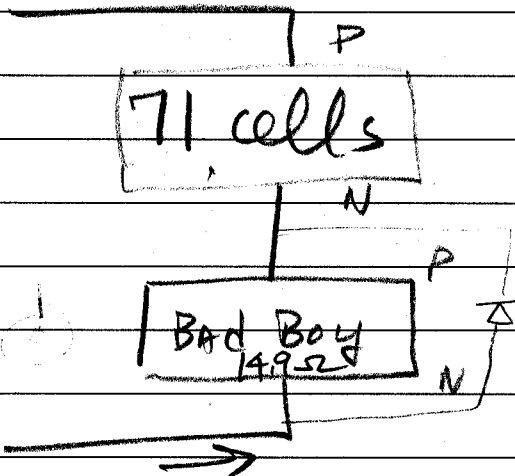 P
71 cells
N
P
Bad Boy
14.9 Ω
N